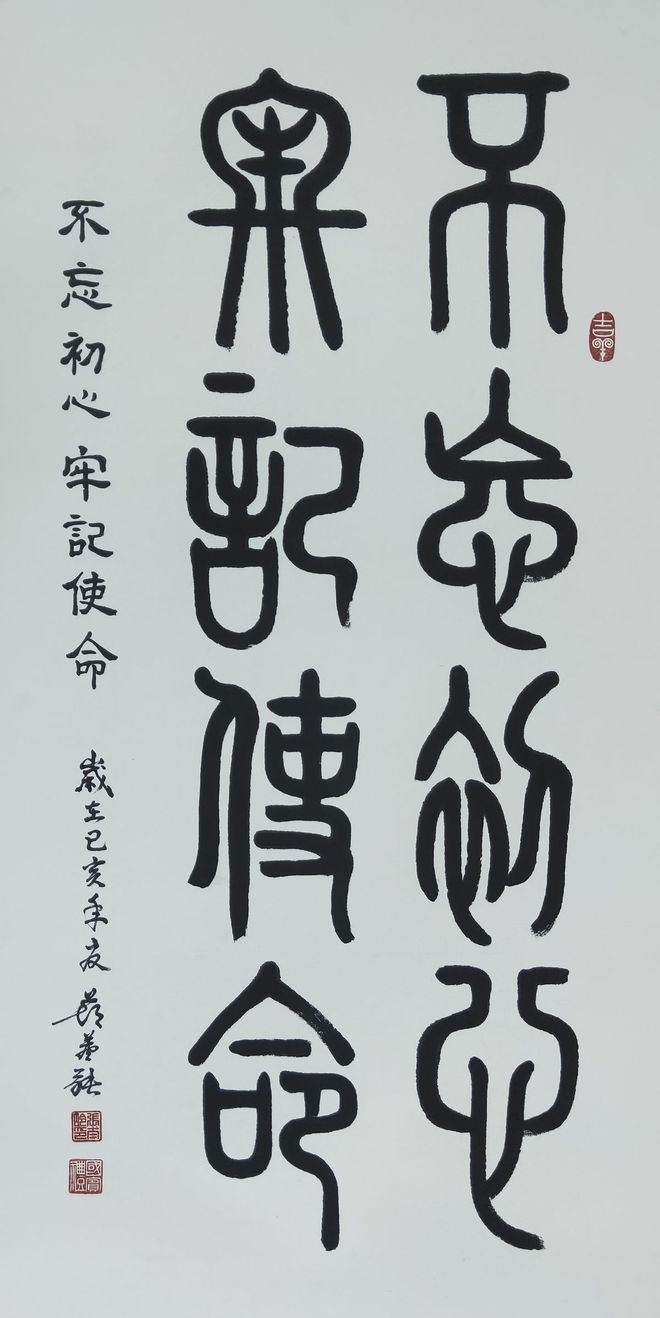 不忘初心
牢記使命
不忘初心 牢記使命
歲在己亥年